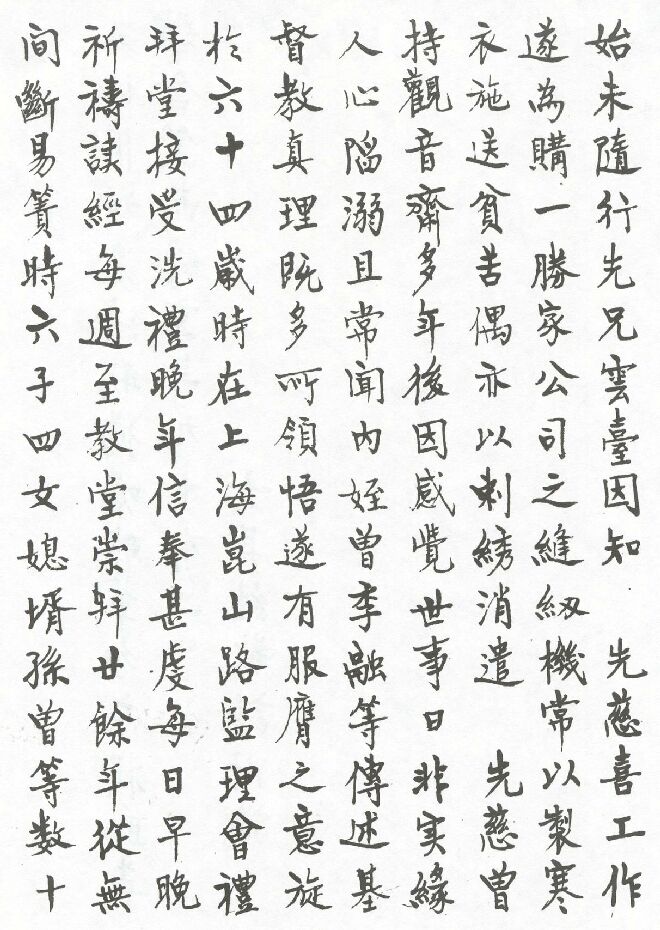 始末隨行先兄雲臺因知　先慈喜工作
遂為購一勝家公司之縫紉機常以製寒
衣施送貧苦偶亦以刺繡消遣　先慈曾
持觀音齋多年後因感覺世事日非实緣
人心陷溺且常聞內姪曾季融等傳述基
督教真理既多所領悟遂有服膺之意旋
於六十四歲時在上海崑山路監理會禮
拜堂接受洗禮晚年信奉甚虔每日早晚
祈禱讀經每週至教堂崇拜廿餘年從無
间斷易簀時六子四女媳壻孫曾等數十